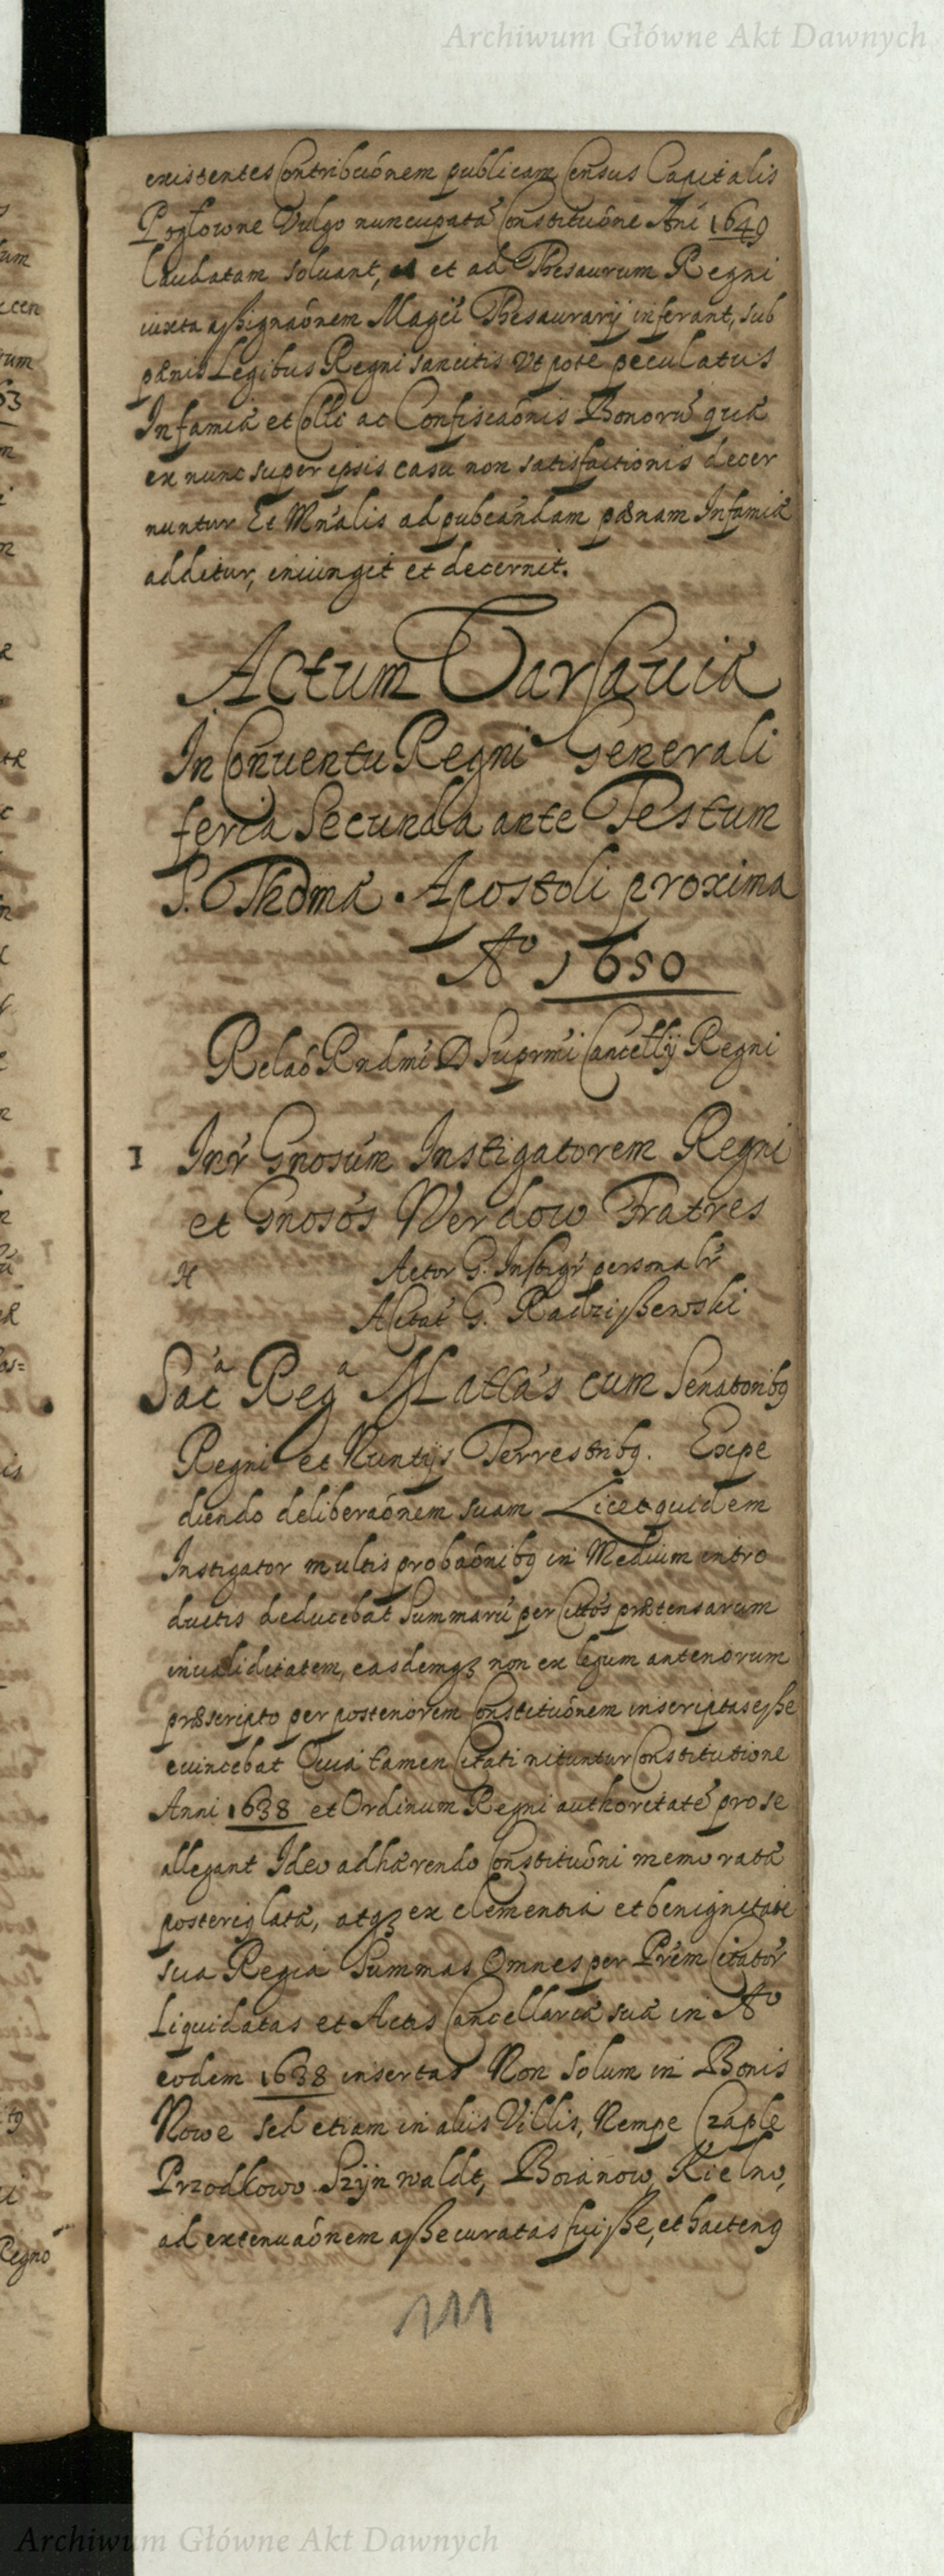 Archiwum Główne Akt Dawnych
existentes Contribuõnem publicam Census Capitalis
Pogłowne Vulgo nuncupatã Constituõne Ani 1649
Laudatam soluant, et ad Thesaurum Regni
iuxta assignaõnem Magci Thesaurarij inferant, sub
pænis Legibus Regni sancitis Vt pote peculatus
Infamiæ et Colli ac Confiscaõnis Bonorũ quæ
ex nunc super ipsis casu non satisfactionis decer
nuntur Et Mñalis ad pubcandam pænam Infamiæ
additur, iniungit et decernit.
Actum Varsauiæ
In Conuentu Regni Generali
feria Secunda ante Festum
S. Thomæ Apostoli proxima
Aº 1650
Relaõ Rndmi D Suprmi Cancellij Regni
1 Intr Gnosum Instigatorem Regni
et Gnosos Werdow Fratres
Actor G. Instigr personalr
Acitat G. Radziszewski
Sacª Regª Mattas cum Senatoribq
Regni et Nuntijs Terrestribq. Expe
diendo deliberaõnem suam Licet quidem
Instigator multis probaõnibq in Medium intro
ductis deducebat Summarũ per Cittos prætensarum
inualiditatem, easdemqz non ex legum anteriorum
præscripto per posteriorem Constituõnem inscriptas esse
euincebat Quia tamen Citati nituntur Constitutione
Anni 1638 et Ordinum Regni authoritatẽ pro se
allegant Ideo adhærendo Constituõni memoratæ
posterig latæ, atqz ex clementia et benignitate
sua Regia Summas Omnes per Prem Citator
Liquidatas et Actis Cancellariæ suæ in Aº
eodem 1638 insertas Non solum in Bonis
Nowe sed etiam in aliis Villis, Nempe Czaple
Przodkowo Szynwaldt, Boianow, Kielno,
ad extenuaõnem assecuratas fuisse, et hacteng
111
Archiwum Główne Akt Dawnych